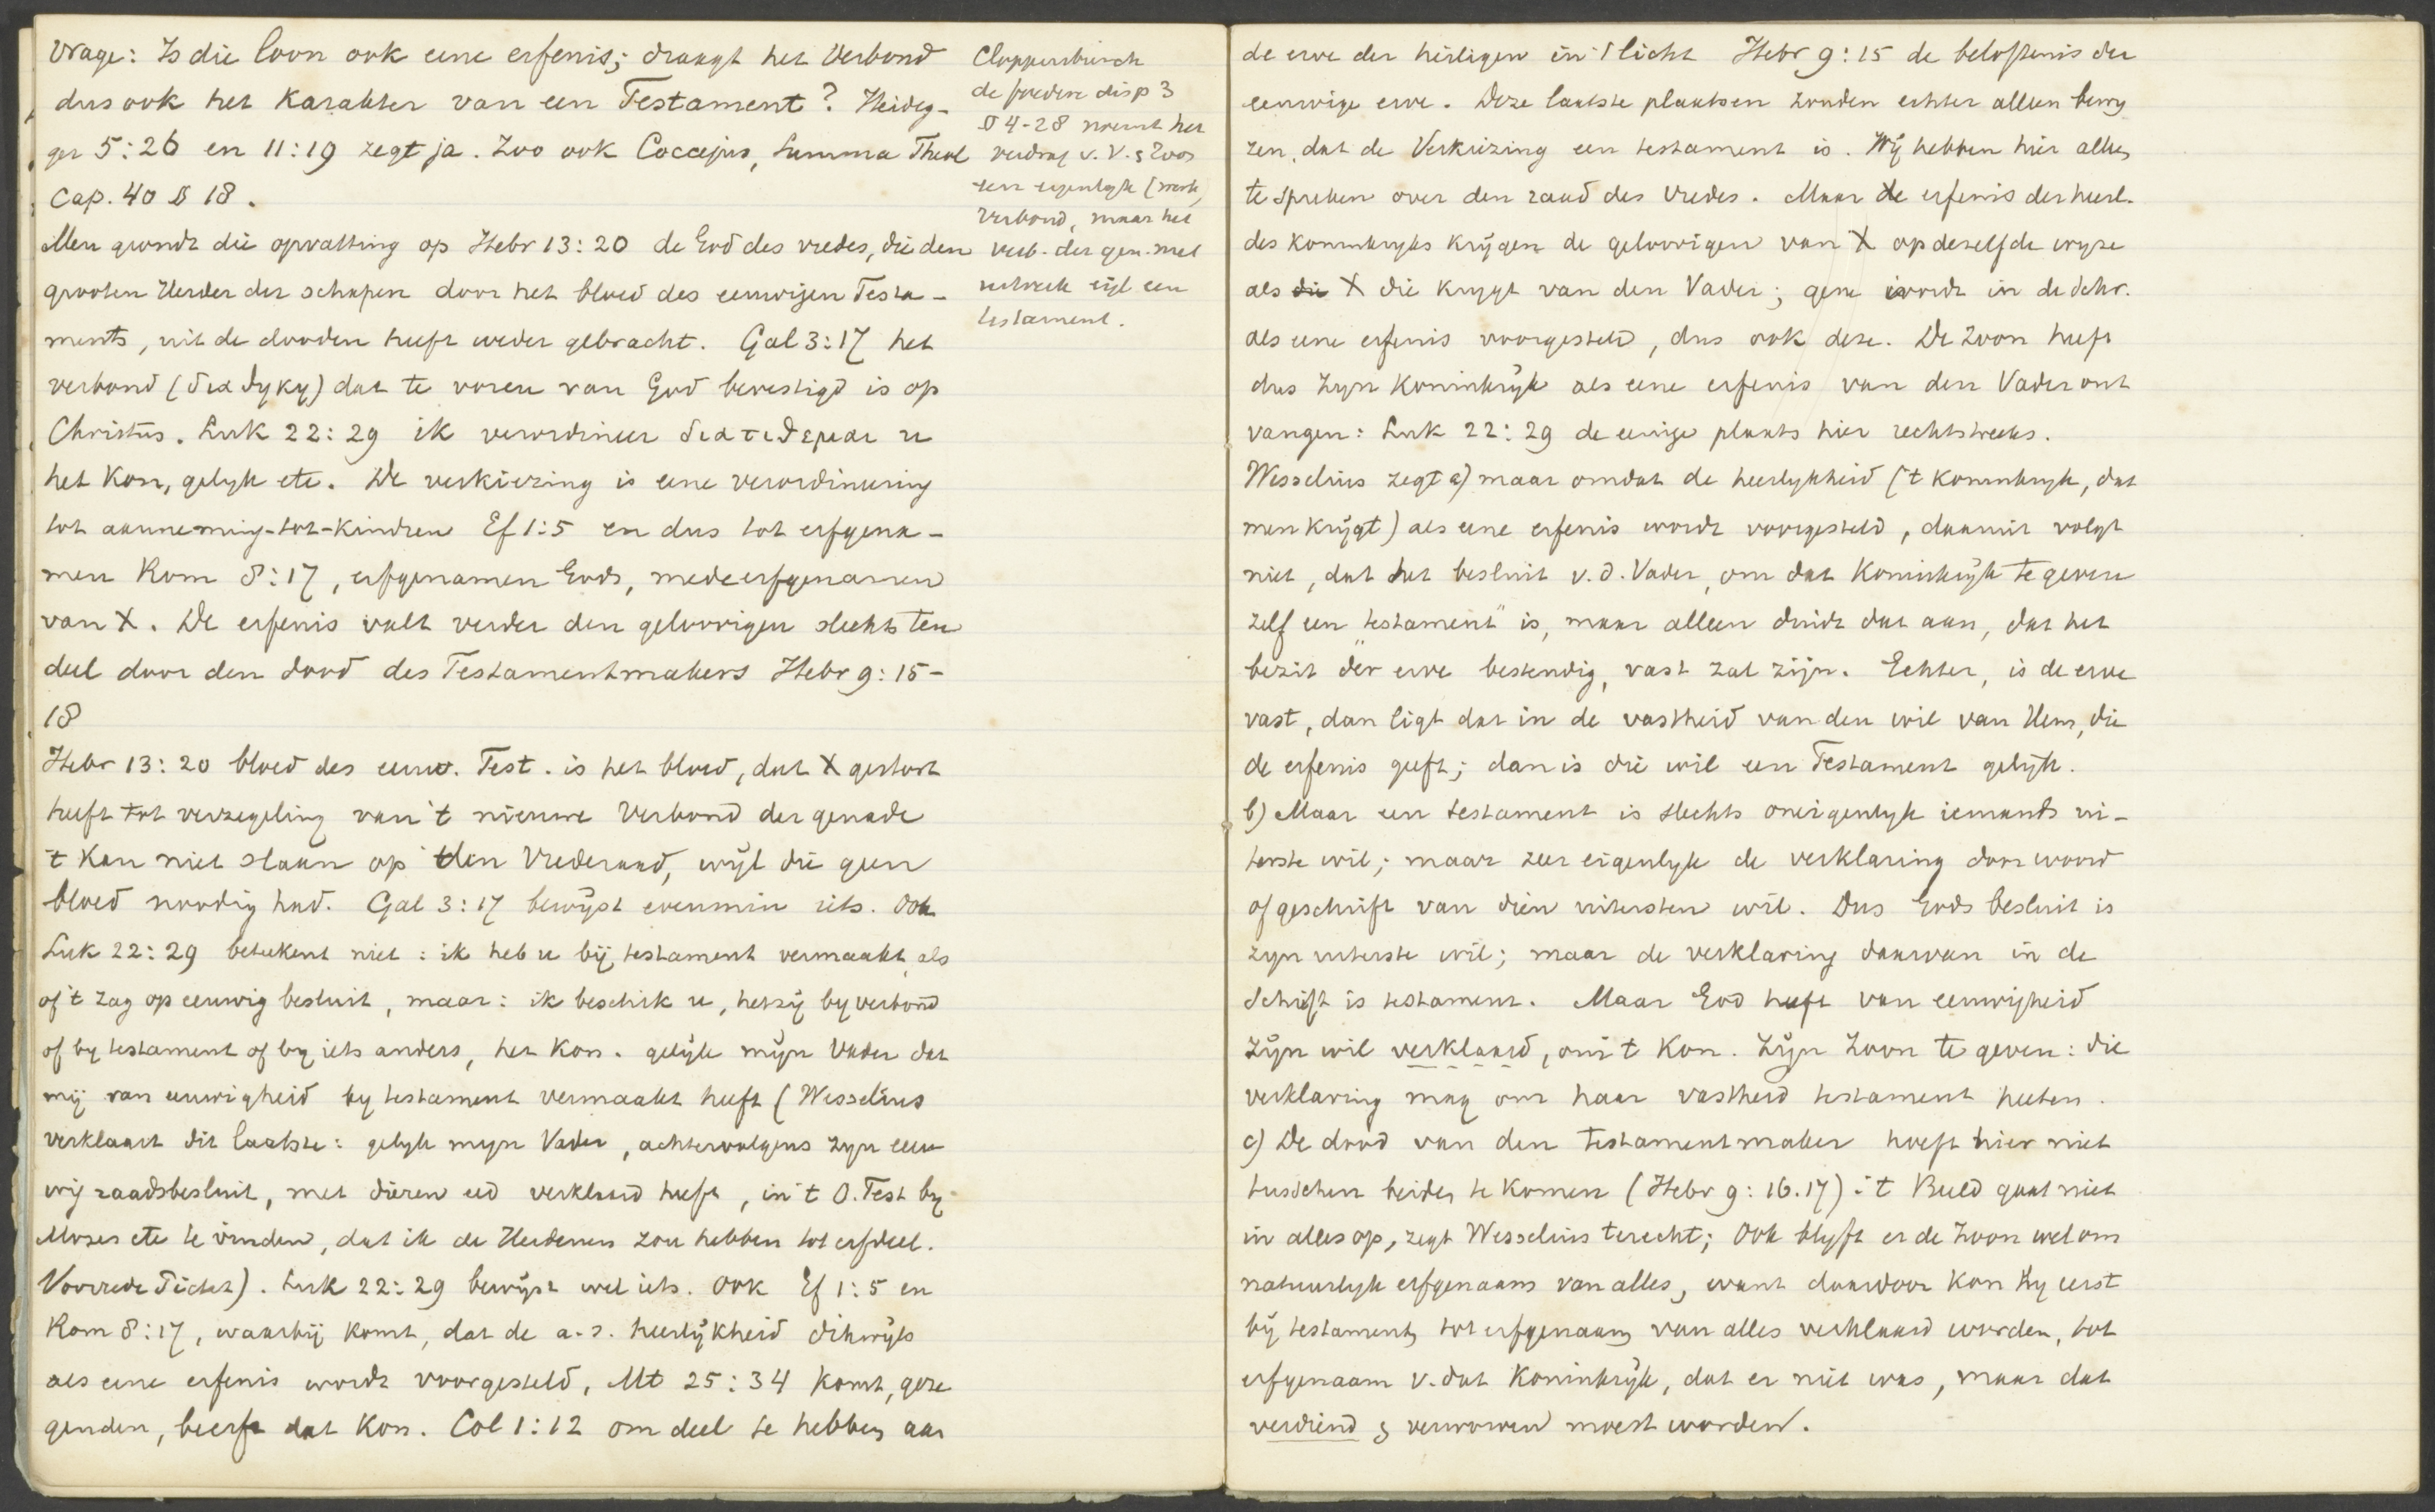 Vrage: Is die loon ook eene erfenis; draagt het Verbond
dus ook het karakter van een Testament? Heideg-
ger 5:26 en 11:19 zegt ja. Zoo ook Coccejus, Summa Theol
Cap. 40 § 18.
Men grondt die opvatting op Hebr 13:20 de God des vredes, die den
grooten Herder der schapen door het bloed des eeuwigen Testa-
ments, uit de dooden heeft weder gebracht. Gal 3:17 het
verbond (διαθηκη) dat te voren van God bevestigd is op
Christus. Luk 22:29 ik verordineer διατιθεμαι u
het Kon, gelyk etc. De verkiezing is eene verordineering
tot aanneming-tot-kindren Ef 1:5 en dus tot erfgena-
men Rom 8:17, erfgenamen Gods, medeerfgenamen
van X. De erfenis valt verder den geloovigen slechts ten
deel door den dood des Testamentmakers Hebr 9:15-
18
Hebr 13:20 bloed des eeuw. Test. is het bloed, dat X gestort
heeft tot verzegeling van 't nieuwe Verbond der genade
't kan niet slaan op den Vrederaad, wijl die geen
bloed noodig had. Gal 3:17 bewijst evenmin iets. Ook
Luk 22:29 beteekent niet: ik heb u bij testament vermaakt, als
of 't zag op eeuwig besluit, maar: ik beschik u, hetzij by verbond
of by testament of by iets anders, het Kon. gelijk mijn Vader dat
mij van eeuwigheid by testament vermaakt heeft (Wesselius
verklaart dit laatste: gelyk myn Vader, achtervolgens zyn eeu
wig raadsbesluit, met dieren eed verklaard heeft, in 't O. Test by
Mozes etc te vinden, dat ik de Heidenen zou hebben tot erfdeel.
Voorrede Tichet). Luk 22:29 bewijst wel iets. Ook Ef 1:5 en
Rom 8:17, waarbij komt, dat de a.s. heerlijkheid dikwijls
als eene erfenis wordt voorgesteld, Mt 25:34 komt, geze
genden, beerft dat Kon. Col 1:12 om deel te hebben aan
Cloppenburch
de foedere disp 3
§ 4-28 noemt het
verdrag v. V. & Zoon
een eigenlyk (werk)
Verbond, maar het
verb. der gen. met
eigl een
testament.
de erve der heiligen in 't licht Hebr 9:15 de beloftenis der
eeuwige erve. Deze laatste plaatsen zouden echter alleen bewy
zen, dat de Verkiezing een testament is. Wij hebben hier alleen
te spreken over den raad des Vredes. Maar de erfenis der heerl.
des koninkryks krijgen de geloovigen van X op dezelfde wyze
als die X die krygt van den Vader; gene wordt in de Schr.
als eene erfenis voorgesteld, dus ook deze. De Zoon heeft
dus zyn koninkrijk als eene erfenis van den Vader ont
vangen: Luk 22:29 de eenige plaats hier rechtstreeks.
Wesselius zegt a) maar omdat de heerlykheid ('t koninkryk, dat
men krijgt) als eene erfenis wordt voorgesteld, daaruit volgt
niet, dat het besluit v.d. Vader, om dat koninkrijk te geven
zelf een "testament" is, maar alleen duidt dat aan, dat het
bezit der erve bestendig, vast zal zijn. Echter, is de erve
vast, dan ligt dat in de vastheid van den wil van Hem, die
de erfenis geeft; dan is die wil een Testament gelijk.
b) Maar een testament is slechts oneigenlyk iemands ui-
terste wil; maar zeer eigenlyk de verklaring door woord
of geschrift van dien uitersten wil. Dus Gods besluit is
zyn uiterste wil; maar de verklaring daarvan in de
Schrift is testament. Maar God heeft van eeuwigheid
zijn wil verklaard, om 't Kon. zijn Zoon te geven: die
verklaring mag om haar vastheid testament heeten.
c) De dood van den testamentmaker hoeft hier niet
tusschen beiden te komen (Hebr 9:16.17): 't Beeld gaat niet
in alles op, zegt Wesselius terecht; Ook blyft er de Zoon wel om
natuurlyk erfgenaam van alles, want daardoor kon Hy eerst
bij testament tot erfgenaam van alles verklaard worden, tot
erfgenaam v. dat koninkrijk, dat er niet was, maar dat
verdiend & verworven moest worden.